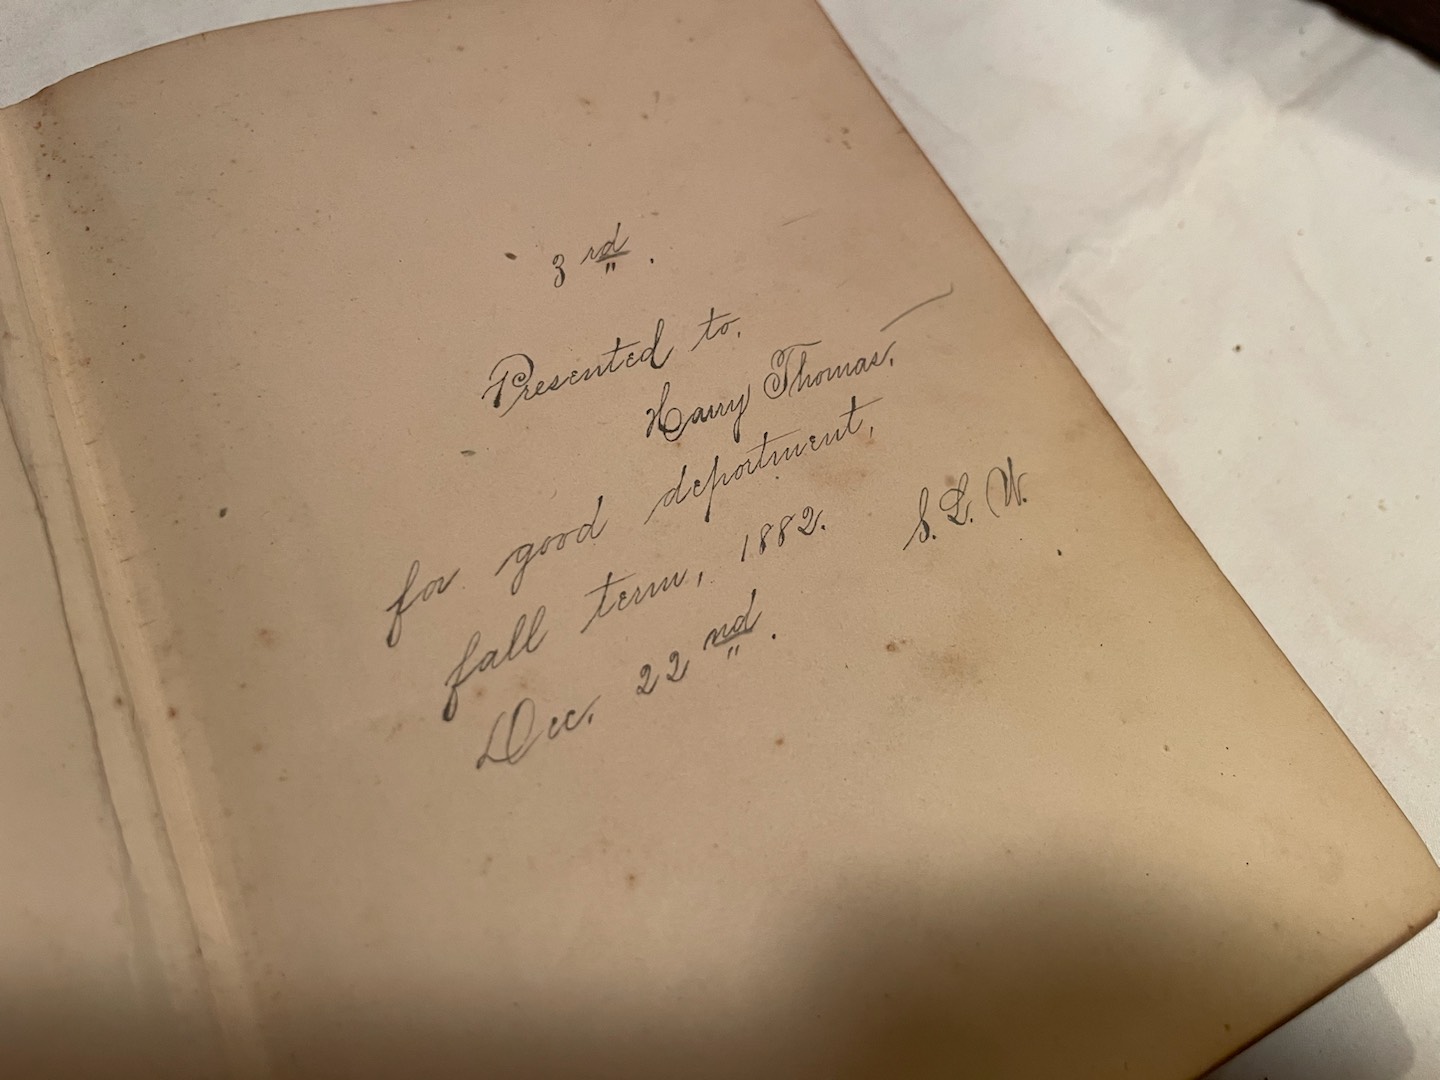 3rd.
Presented to,
Harry Thomas,
for good deportment,
fall term, 1882. S. L. W.
Dec. 22nd.